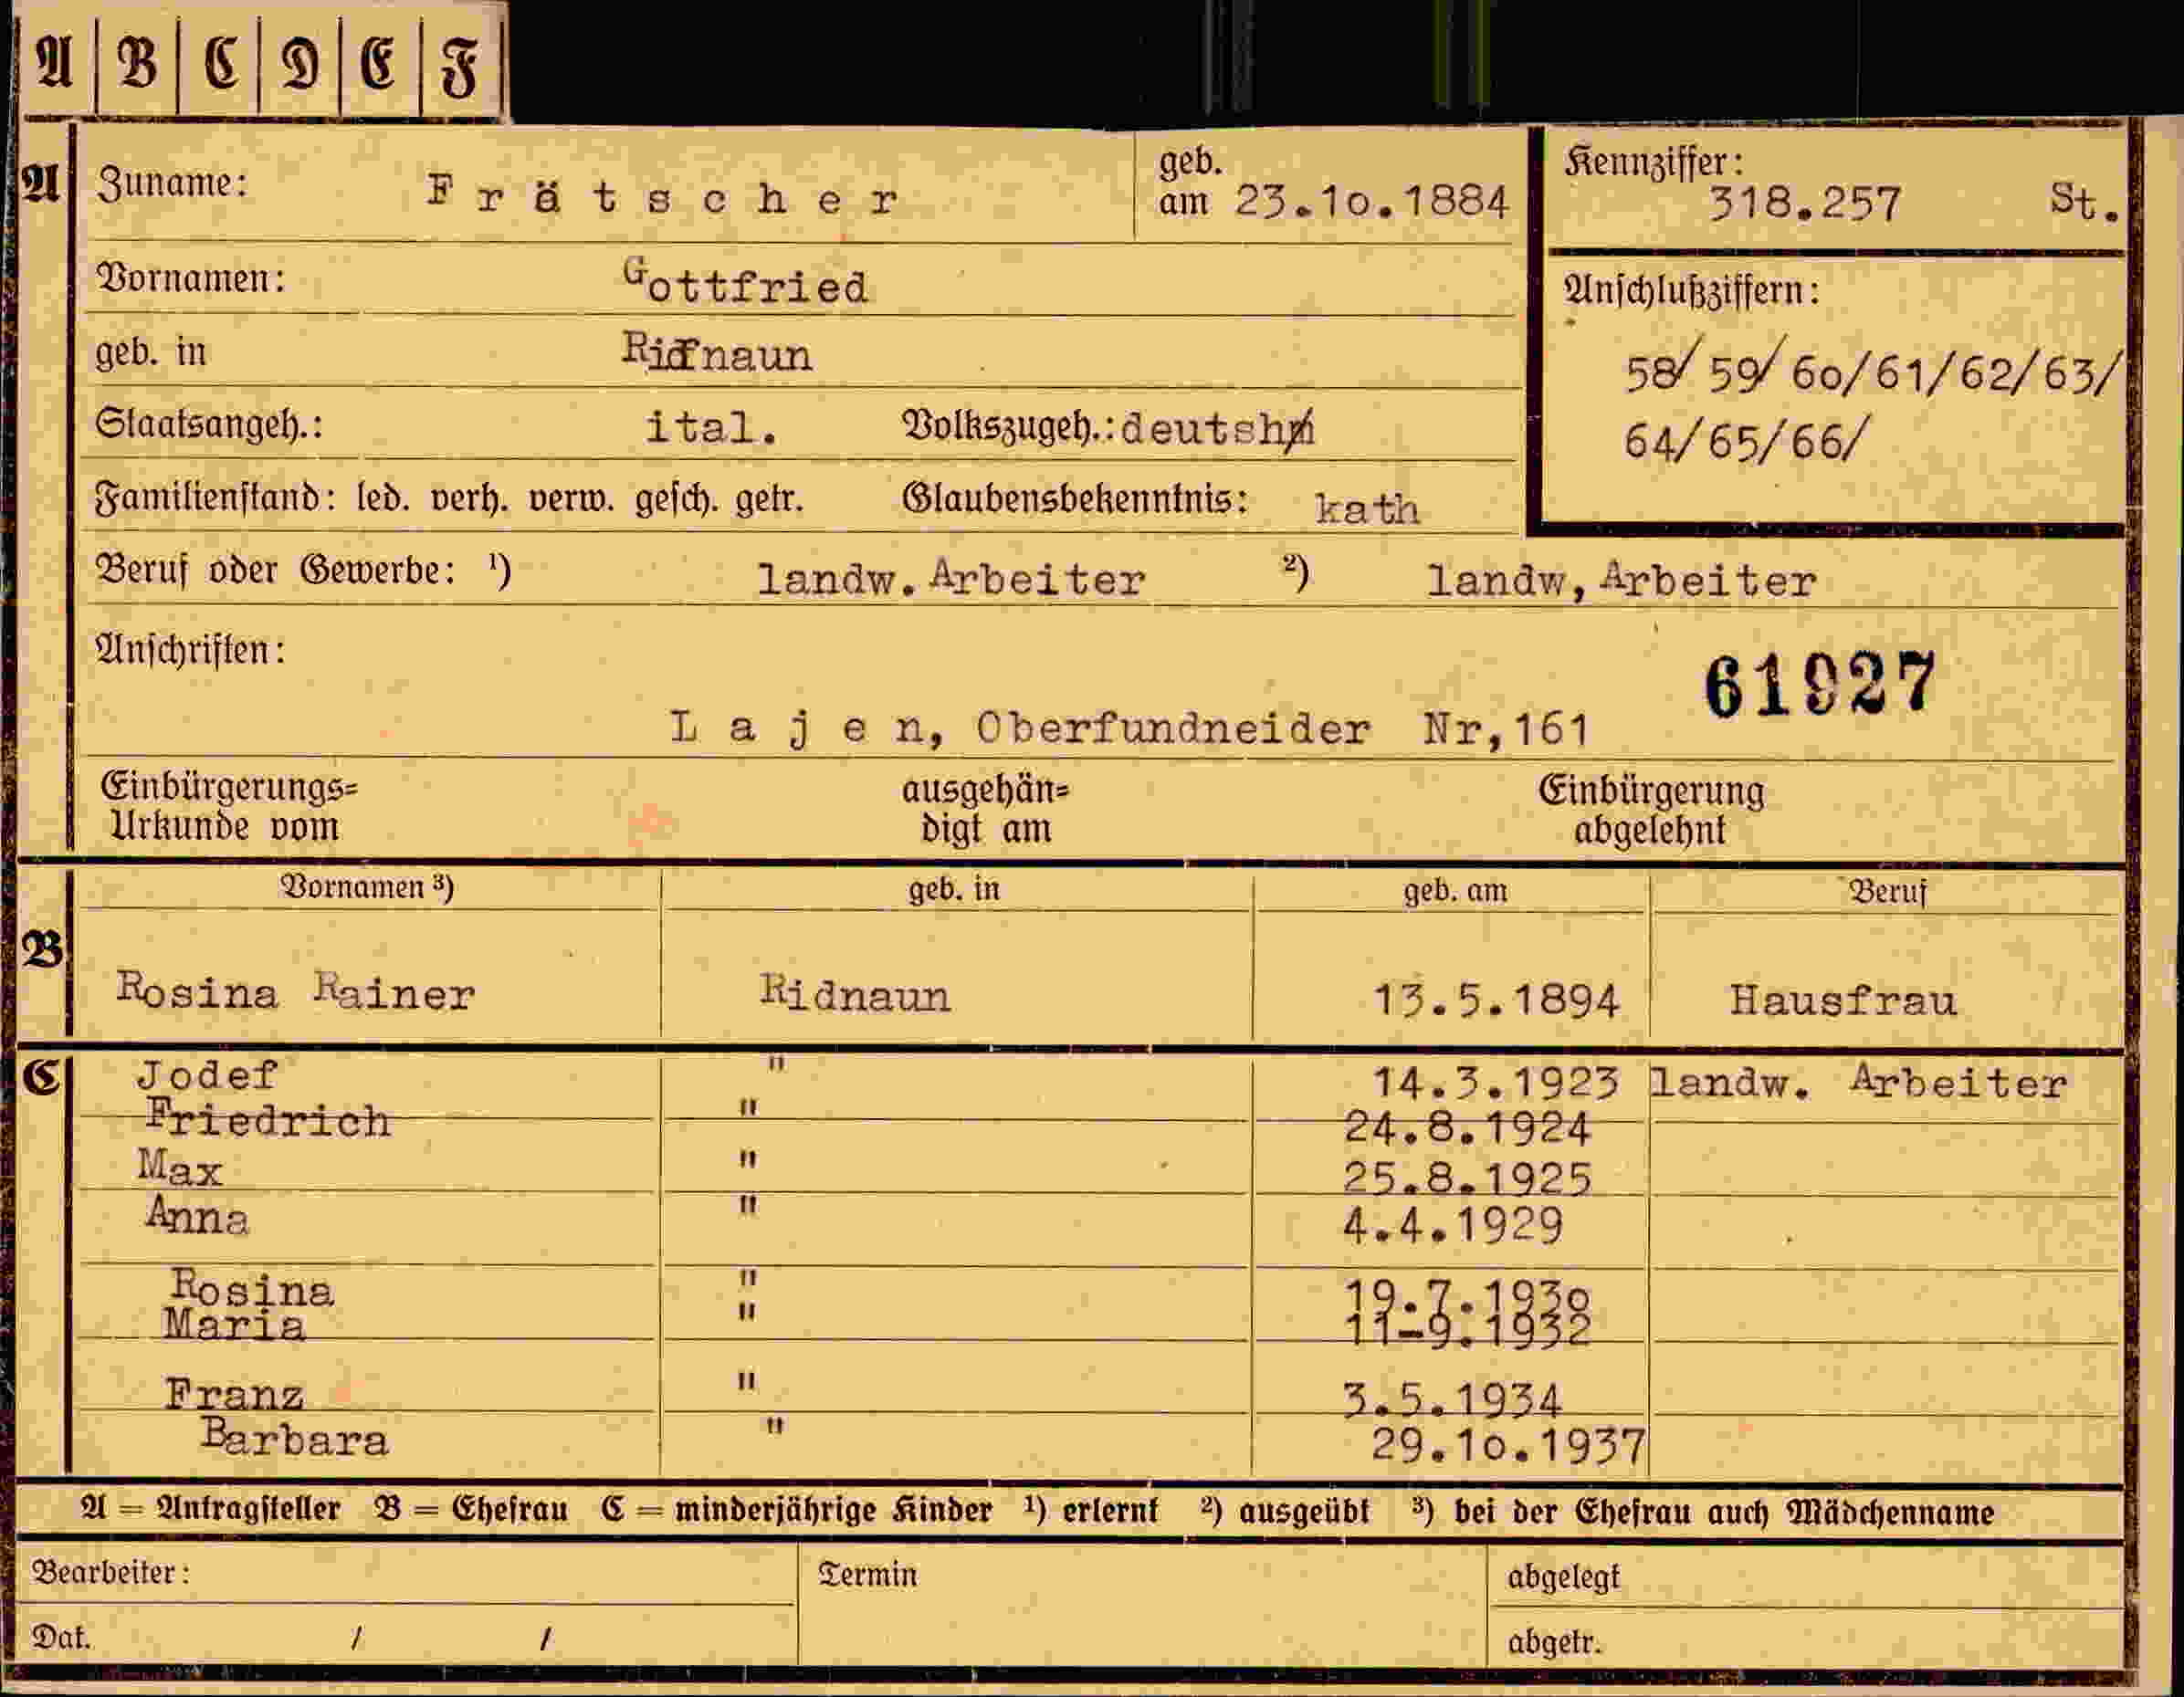 A B C D E F
A Zuname: Frätscher geb. am 23.10.1884 Kennziffer: 318.257 St.
Vornamen: Gottfried Anschlußziffern:
geb. in Ridnaun 58/ 59/ 60/61/62/63/
Staatsangeh.: ital. Volkszugeh.: deutsh 64/65/66/
Familienstand: led. verh. verw. gesch. getr. Glaubensbekenntnis: kath
Beruf oder Gewerbe: ¹) landw. Arbeiter ²) landw, Arbeiter
Anschriften: 61927
Lajen, Oberfundneider Nr,161
Einbürgerungs= ausgehän= Einbürgerung
Urkunde vom digt am abgelehnt
Vornamen ³) geb. in geb. am Beruf
B Rosina Rainer Ridnaun 13.5.1894 Hausfrau
C Jodef " 14.3.1923 landw. Arbeiter
Friedrich " 24.8.1924
Max " 25.8.1925
Anna " 4.4.1929
Rosina " 19.7.1930
Maria " 11-9.1932
Franz " 3.5.1934
Barbara " 29.10.1937
A = Antragsteller B = Ehefrau C = minderjährige Kinder ¹) erlernt ²) ausgeübt ³) bei der Ehefrau auch Mädchenname
Bearbeiter: Termin abgelegt
Dat. / / abgetr.